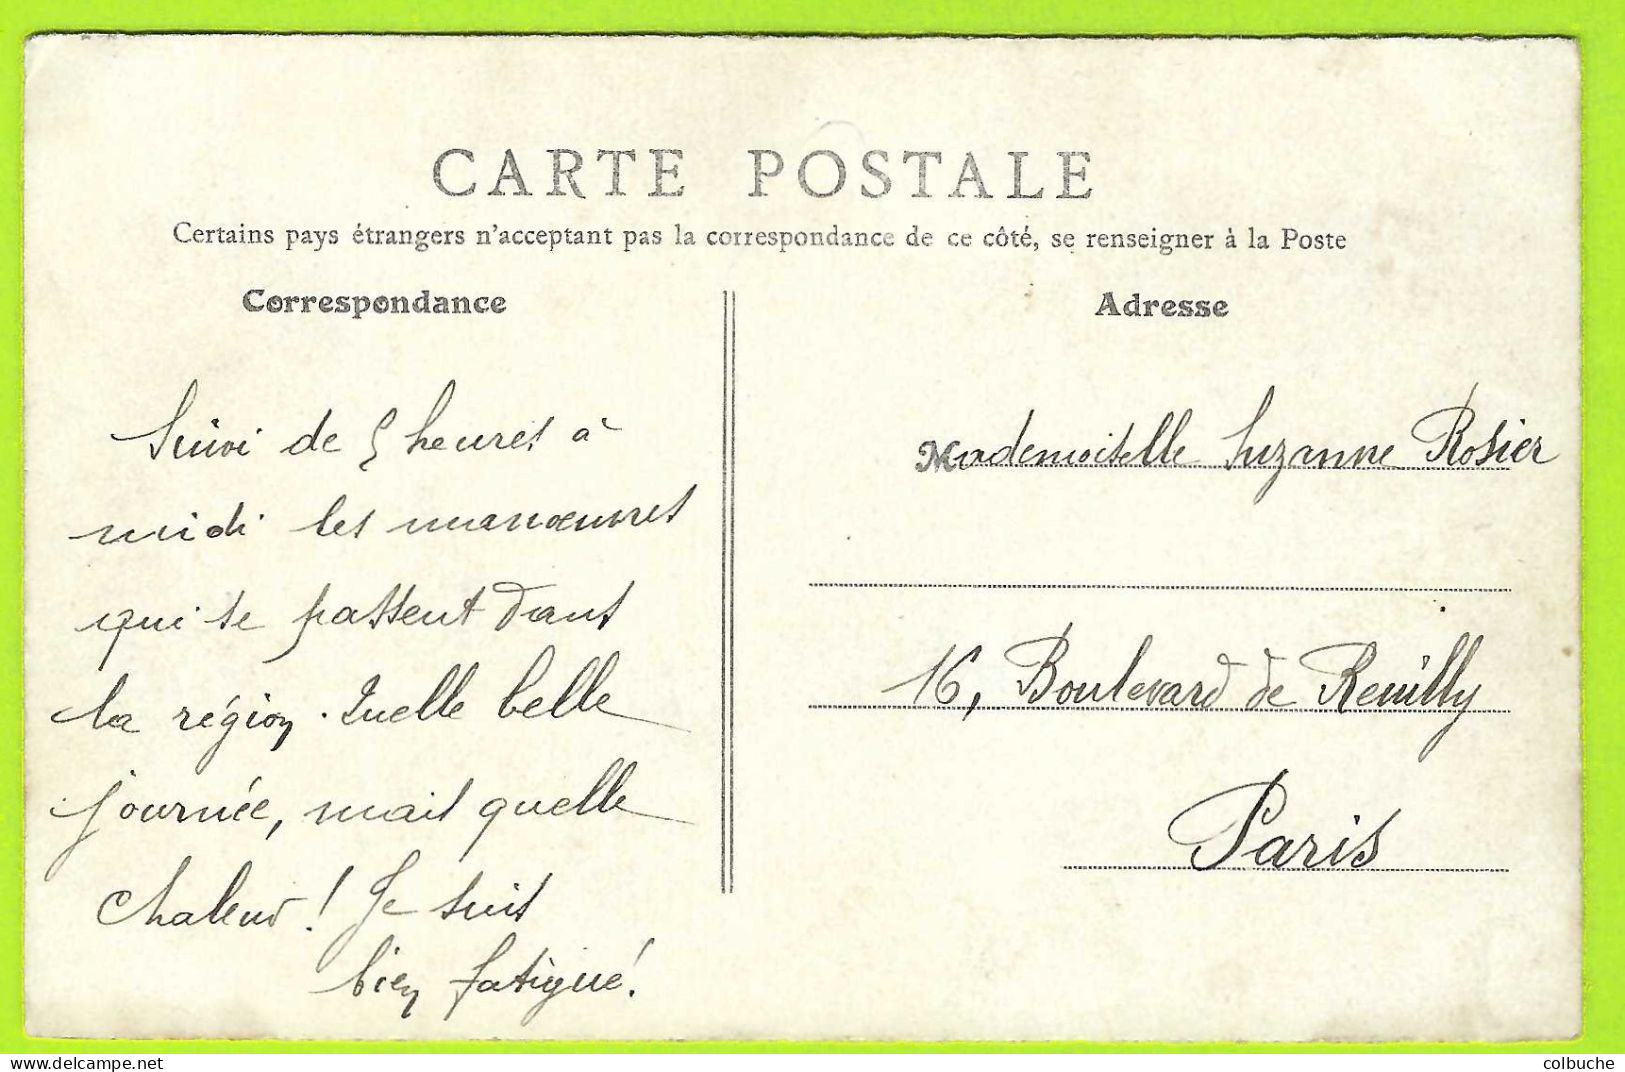 CARTE POSTALE
Certains pays étrangers n'acceptant pas la correspondance de ce côté, se renseigner à la Poste
Correspondance
Suivi de 5 heures à
midi les manœuvres
qui se passent dans
la région. Quelle belle
journée, mais quelle
chaleur! Je suis
bien fatigué!
Adresse
Mademoiselle Suzanne Rosier
16, Boulevard de Reuilly
Paris
delcampe.net
colbuche